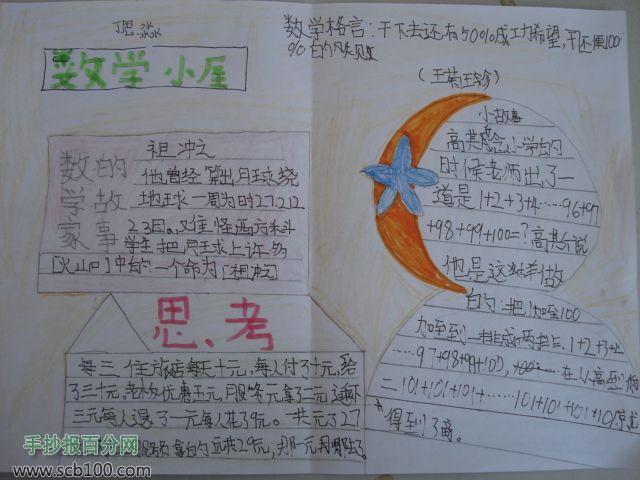 丁思淼
数学小屋
数学格言：干下去还有50%成功希望，不干便100
%的失败
（王菊王轸）
数的
学故
家事
祖冲之
他曾经算出月球绕
地球一周为时27.212
23日。难怪西方科
学家把月球上许多
[火山口]中的一个命为[祖冲之]
思考
每三住旅店每天十元，每人付了十元，给
了三十元，老板优惠五元，服务元拿了二元退还
三元每人退了一元每人花了9元。一共元了27
拿的元共29元，那一元哪去了
小故事
高其念小学的
时候老师出了一
道是1+2+3+4……96+97
+98+99+100=？高其介说
他是这样做
的：把1加至100
加至到一排成两排，1+2+3+4
……97+98+99+100，在从高到低
=101+101+101+……101+101+101+101原式
得到了商。
手抄报百分网
www.scb100.com